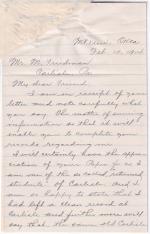 Okla
Feb. 10, 1914
Mr. M. Friedman
Carlisle, Pa
My dear Friend:
I am in receipt of your
letter and note carefully what
you say. The matter of some
information so that it will
enable you to complete your
records regarding me.
I will certainly have the appre-
ciation of your Paper for as I
am one of the so called returned
students of Carlisle. And I
am so happy to state that I
had left a clean record at
Carlisle and further more will
say that the same old Carlisle